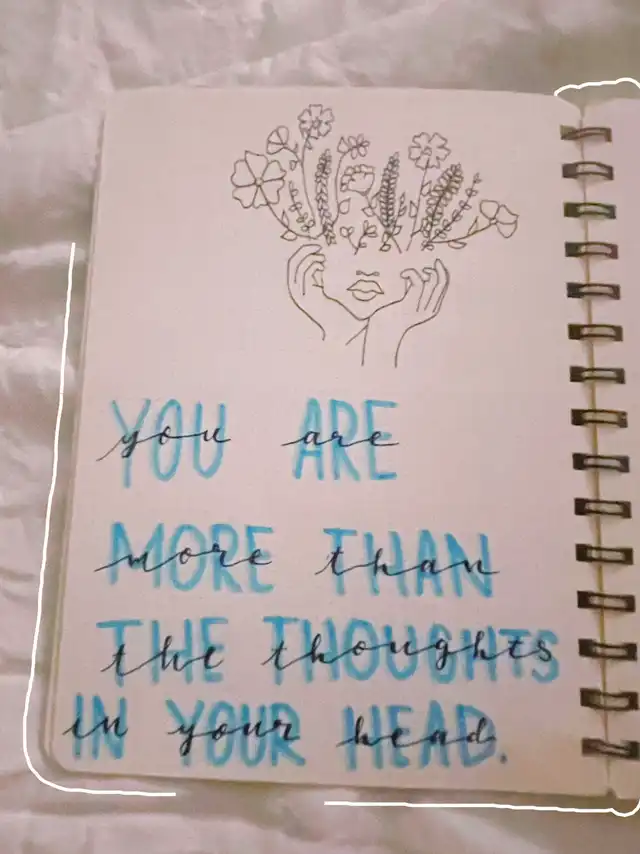 YOU ARE
you are
MORE THAN
more than
THE THOUGHTS
the thoughts
IN YOUR HEAD.
in your head.